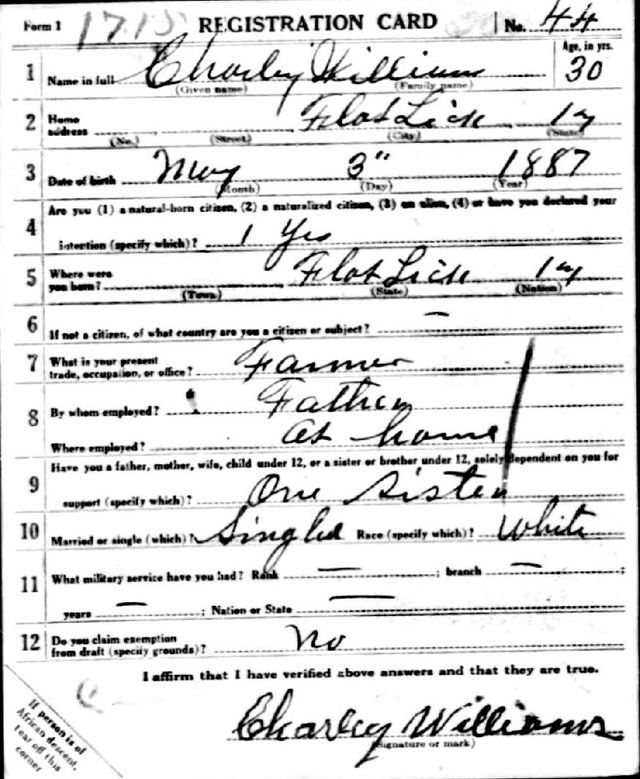 Form 1 1715 REGISTRATION CARD No. 44
1 Name in full Charley Williams Age, in yrs. 30
(Given name) (Family name)
2 Home address Flat Lick Ky
(No.) (Street) (City) (State)
3 Date of birth May 3" 1887
(Month) (Day) (Year)
4 Are you (1) a natural-born citizen, (2) a naturalized citizen, (3) an alien, (4) or have you declared your
intention (specify which)? 1 Yes
5 Where were you born? Flat Lick Ky
(Town) (State) (Nation)
6 If not a citizen, of what country are you a citizen or subject? —
7 What is your present trade, occupation, or office? Farmer
8 By whom employed? Father
Where employed? at home
9 Have you a father, mother, wife, child under 12, or a sister or brother under 12, solely dependent on you for
support (specify which)? One Sister
10 Married or single (which)? Single Race (specify which)? White
11 What military service have you had? Rank — ; branch — ;
years — ; Nation or State —
12 Do you claim exemption from draft (specify grounds)? No
I affirm that I have verified above answers and that they are true.
Charley Williams
(Signature or mark)
If person is of
African descent,
tear off this
corner